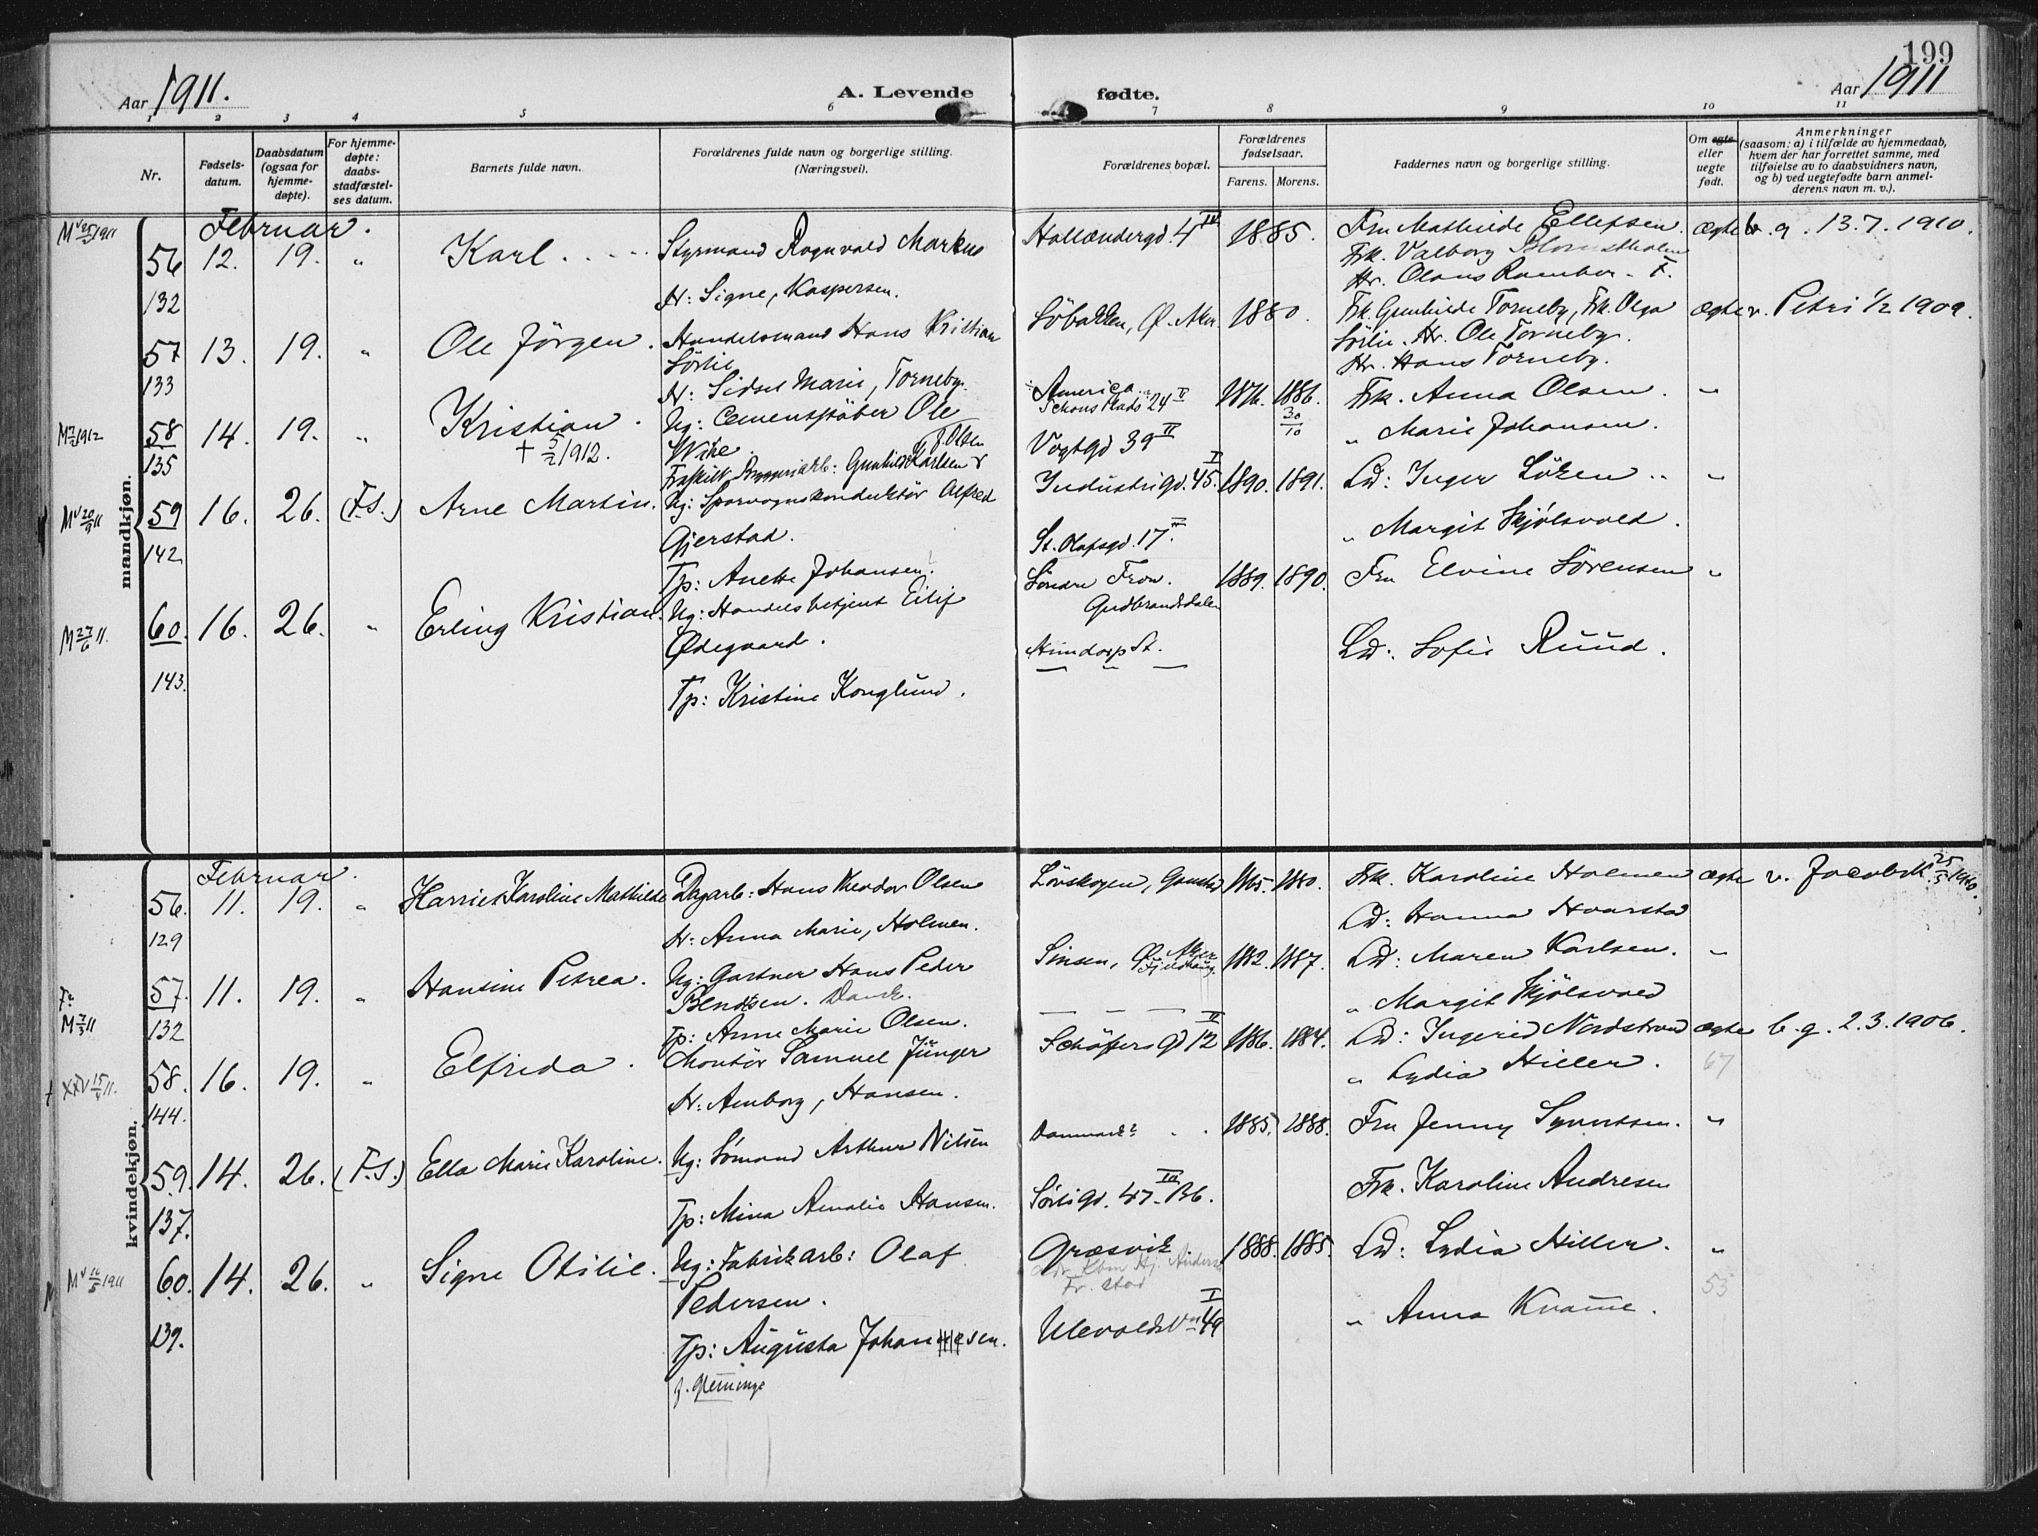 199
Aar 1911.
A. Levende fødte.
Aar 1911
1 2 3 4 5 6 7 8 9 10 11
Nr.
Fødsels-
datum.
Daabsdatum
(ogsaa for
hjemme-
døpte).
For hjemme-
døpte:
daabs-
stadfæstel-
ses datum.
Barnets fulde navn.
Forældrenes fulde navn og borgerlige stilling.
(Næringsvei).
Forældrenes bopæl.
Forældrenes
fødselsaar.
Farens. Morens.
Faddernes navn og borgerlige stilling.
Om egte
eller
uegte
født.
Anmerkninger
(saasom: a) i tilfælde av hjemmedaab,
hvem der har forrettet samme, med
tilføielse av to daabsvidners navn,
og b) ved uegtefødte barn anmel-
derens navn m. v.).
mandkjøn.
Februar.
56 12. 19. " Karl
132
Styrmand Rognvald Markus
H: Signe, Kaspersen.
Hollændergd. 4 IV
1885.
Fru Mathilde Ellefsen.
Frk. Valborg
Hr. Olaus
ægte b. g. 13.7.1910.
57 13. 19. " Ole Jörgen.
133
Handelsmand Hans Kristian
Sörlie
H: Sidsel Marie, Torneby.
Söbakken, Ø. Aker
1880.
Frk. Gunhilde Torneby, Frk. Olga
Sörlie. Hr. Ole Torneby.
Hr. Hans Torneby.
ægte v. Petri 1/2 1909.
58 14. 19. " Kristian.
135
+ 5/2 1912.
Ug: Cementstöber Ole
Wike
Gunhild Karlsen
America
Schous Plads 24 V
Vogtgd 39 II
1876. 1886.
30/10
Frk. Anna Olsen
" Marie Johansen.
"
59 16. 26. (F.S.) Arne Martin.
142
Ug: Sporvognskonduktör Alfred
Gjerstad.
Tp: Anette Johansen.
Industrigd. 45. I
St. Olafsgd. 17.
1890. 1891.
Ld: Inger Löken
" Margit Skjölsvold.
"
60. 16. 26. " Erling Kristian.
143.
Ug: Handelsbetjent Eilif
Ødegaard.
Tp: Kristine Konglund.
Söndre Fron.
Gudbrandsdalen
Hundorp St.
1889. 1890.
Fru Elvine Sörensen
Ld: Sofie Ruud.
"
kvindekjøn.
Februar.
56. 11. 19. " Harriet Karoline Mathilde
129
Dagarb: Hans Theodor Olsen
H: Anna Marie, Holmen.
Lövskogen,
1880.
Frk. Karoline Holmen
Ld: Hanna
ægte v. Jacobsk. 25/5 1910.
57. 11. 19. " Hansine Petrea.
132
Ug: Gartner Hans Peder
Bendtsen. Dansk.
Tp: Anne Marie Olsen.
Sinsen, Ø. Aker
1882. 1887.
Ld: Maren Karlsen.
" Margit Skjölsvold
"
58. 16. 19. " Elfrida.
144.
Montör Samuel Jünger
H: Amborg, Hansen.
Schöffers Gd 12 II
1886. 1884.
Ld: Ingerid Nordstrand
" Lydia Hiller.
ægte b. g. 2.3.1906.
67
59. 14. 26. (F.S.) Ella Marie Karoline.
137.
Ug: Sömand Arthur Nilsen
Tp: Mina Amalie Hansen.
Danmark?
Sörligd. 47. Bb.
1885. 1888.
Fru Jenny Syvertsen.
Frk. Karoline Andresen
"
60. 14. 26. " Signe Otilie.
139.
Ug: Fabrikarb: Olaf
Pedersen.
Tp: Augusta Johannesen.
Græsvik
Fr. stad
Ulevoldsvn 49 I
1888. 1885.
Ld: Lydia Hiller.
" Anna Kvame.
"
53